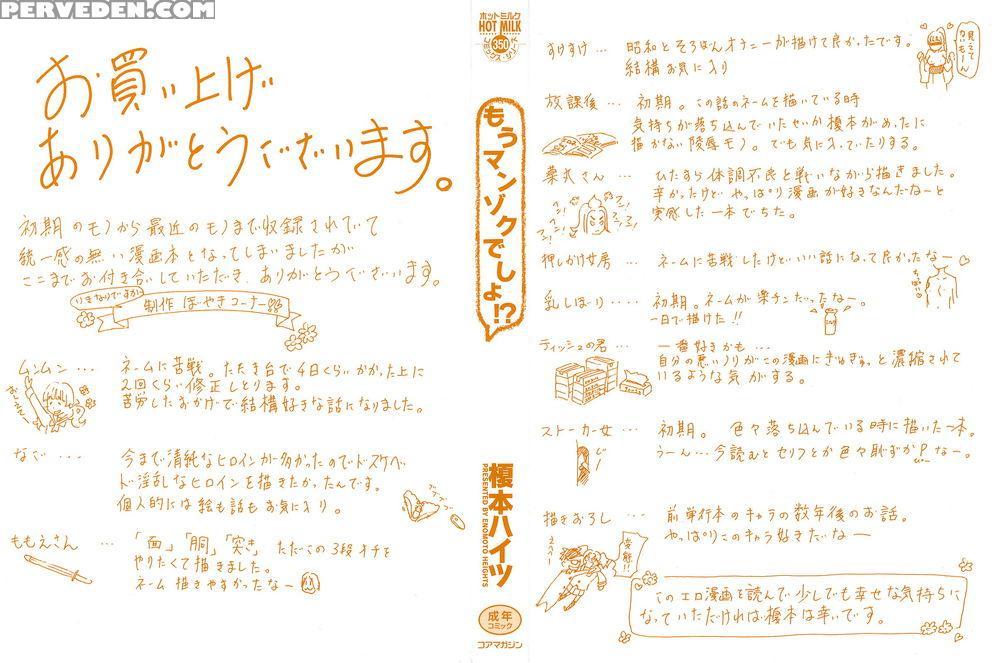 PERVEDEN.COM
お買い上げ
ありがとうございます。
初期のモノから最近のモノまで収録されていて
統一感の無い漫画本となってしまいましたが
ここまでお付き合いしていただき、ありがとうございます。
いきなりですが
制作ぼやきコーナー
ムンムン…
ネームに苦戦。たたき台で4日くらいかかった上に
2回くらい修正しとります。
苦労したおかげで結構好きな話になりました。
なご…
今まで清純なヒロインが多かったのでドスケベ
ド淫乱なヒロインを描きたかったんです。
個人的には絵も話もお気に入り。
ももえさん…
「面」「胴」「突き」ただこの3段オチを
やりたくて描きました。
ネーム描きやすかったなー
ホットミルク
HOT MILK
350
もうマンゾクでしょ!?
榎本ハイツ
PRESENTED BY ENOMOTO HEIGHTS
成年
コミック
コアマガジン
すけすけ…
昭和とそろばんオナニーが描けて良かったです。
結構お気に入り
放課後…
初期。この話のネームを描いている時
気持ちが落ち込んでいたせいか榎本があったに
描かない陵辱モノ。でも気に入っていたりする。
ひたすら体調不良と戦いながら描きました。
辛かったけどやっぱり漫画が好きなんだねーと
実感した一本でちた。
押しかけ女房…
ネームに苦戦したけどいい話になって良かったなー
乳しぼり…
初期。ネームが楽チンだったなー。
一日で描けた!!
ティッシュの君…
一番好きかも…
自分の悪いノリがこの漫画にぎゅぎゅっと濃縮されて
いるような気がする。
ストーカー女…
初期。色々落ち込んでいる時に描いた一本。
うーん…今読むとセリフとか色々恥ずかPなー。
じー
描きおろし…
前単行本のキャラの数年後のお話。
やっぱりこのキャラ好きだいなー
変態!!
このエロ漫画を読んで少しでも幸せな気持ちに
なっていただければ榎本は幸いです。